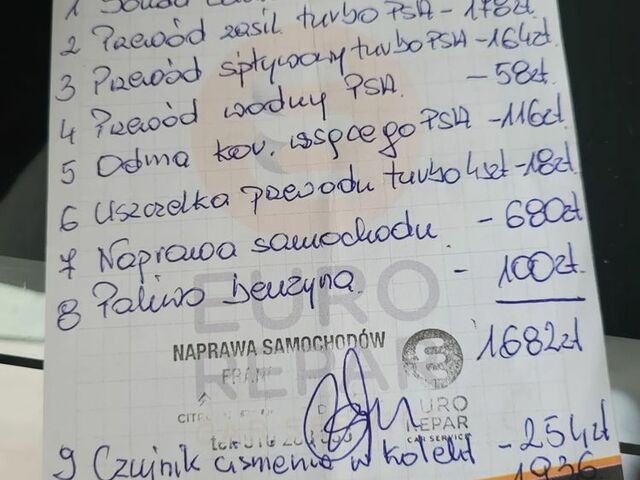 1 Sonda
2 Przewód zasil turbo PSA - 178zł
3 Przewód spływowy turbo PSA - 164zł
4 Przewód wodny PSA. - 58zł
5 Odma kov. wspcego PSA - 116zł
6 Uszczelka przewodu turbo 4szt - 18zł
7 Naprawa samochodu - 680zł
8 Paliwo benzyna. - 100zł.
1682zł
EURO
REPAR
NAPRAWA SAMOCHODÓW
EURO
REPAR
CAR SERVICE
9 Czujnik ciśnienia w kolekt - 254zł
1936